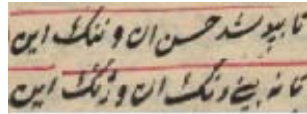 تا بپوشد حسن آن و ننگ این
تا نه بینے رنگ آن و زنگ این